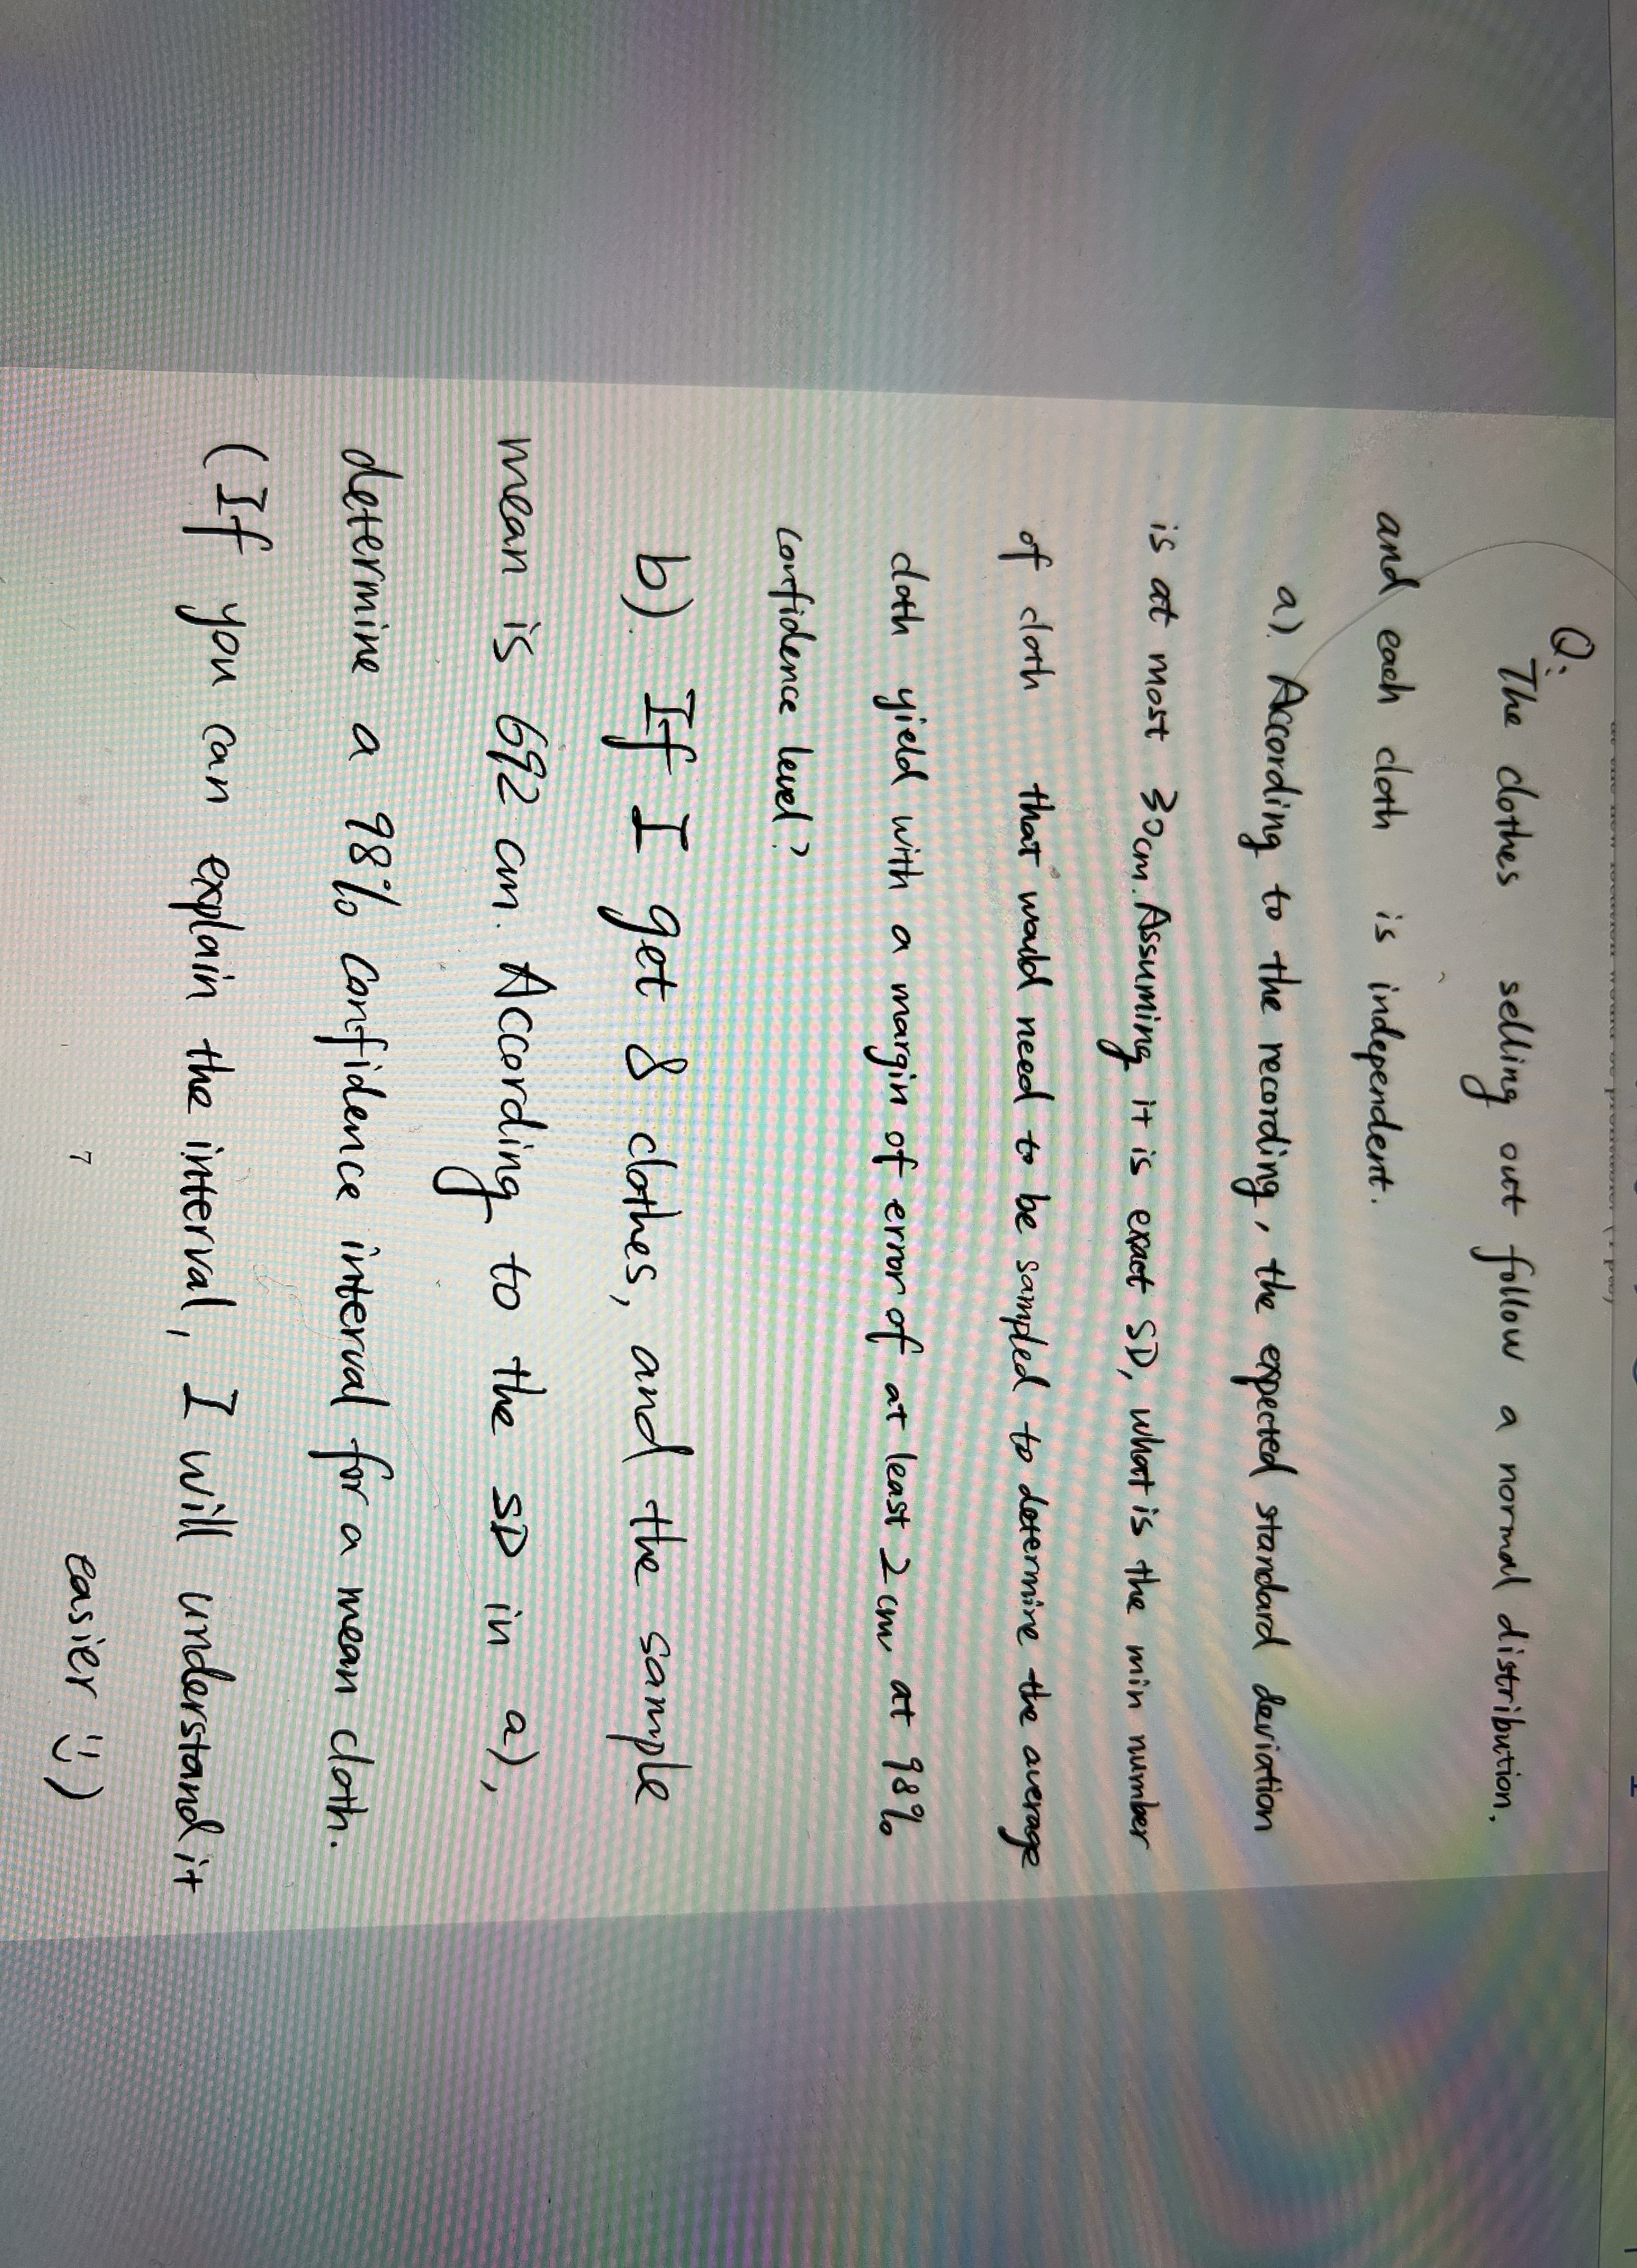 Q:
The clothes selling out follow a normal distribution.
and each cloth is independent.
a). According to the recording, the expected standard deviation
is at most 30cm. Assuming it is exact SD, what is the min number
of cloth that would need to be sampled to determine the average
cloth yield with a margin of error of at least 2cm, at 98%
confidence level?
b). If I get 8 clothes, and the sample
mean is 692 cm. According to the SD in a),
determine a 98% confidence interval for a mean cloth.
(If you can explain the interval, I will understand it
easier :))